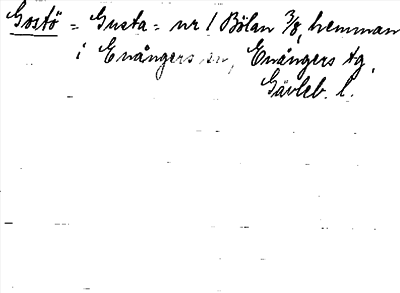 Gostö = Gusta = nr 1 Bölan 3/8, hemman
i Enångers sn, Enångers tg,
Gävleb. l.